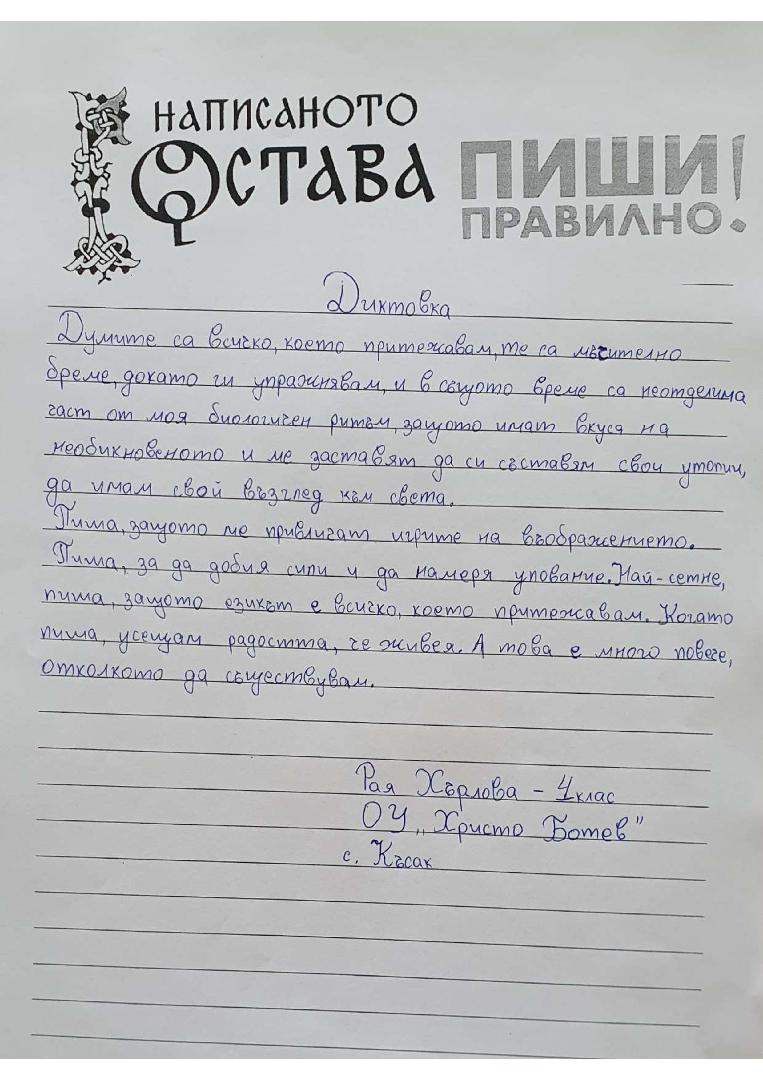 НАПИСАНОТО
ОСТАВА
ПИШИ!
ПРАВИЛНО
Диктовка
Думите са всичко, което притежавам, те са мъчително
бреме, докато ги упражнявам, и в същото време са неотделима
част от моя биологичен ритъм, защото имат вкуса на
необикновеното и ме заставят да си съставям свои утопии,
да имам свой възглед към света.
Пиша, защото ме привличат игрите на въображението.
Пиша, за да добия сили и да намеря упование. Най-сетне,
пиша, защото езикът е всичко, което притежавам. Когато
пиша, усещам радостта, че живея. А това е много повече,
отколкото да съществувам.
Рая Хърлова - 4 клас
ОУ „Христо Ботев"
с. Късак